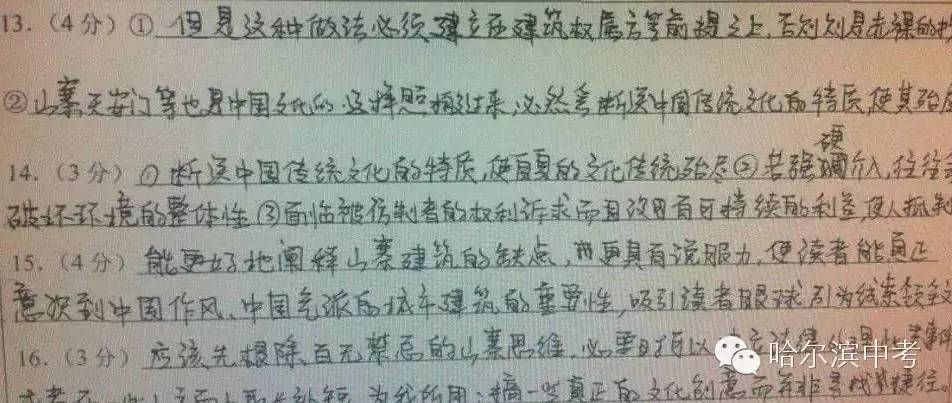 13.（4分）① 但是这种做法必须建立在建筑权属言等前提之上,否则则是赤裸的抄
②山寨天安门等也是中国文化的 这样照搬过来,必然会断送中国传统文化的特质,使其殆尽
14.（3分）①断送中国传统文化的特质,使自身的文化传统殆尽②若强硬介入,往往会
破坏环境的整体性 ③面临被仿制者的权利诉求而且没有可持续的利益,使人抵制
15.（4分）能更好地阐释山寨建筑的缺点,更具有说服力,使读者能真正
意识到中国作风、中国气派的城市建筑的重要性,吸引读者眼球,引为线索领
16.（3分）应该先根除百无禁忌的山寨思维,必要时可以
为我所用;搞一些真正的文化创意而并非寻找捷径。
哈尔滨中考